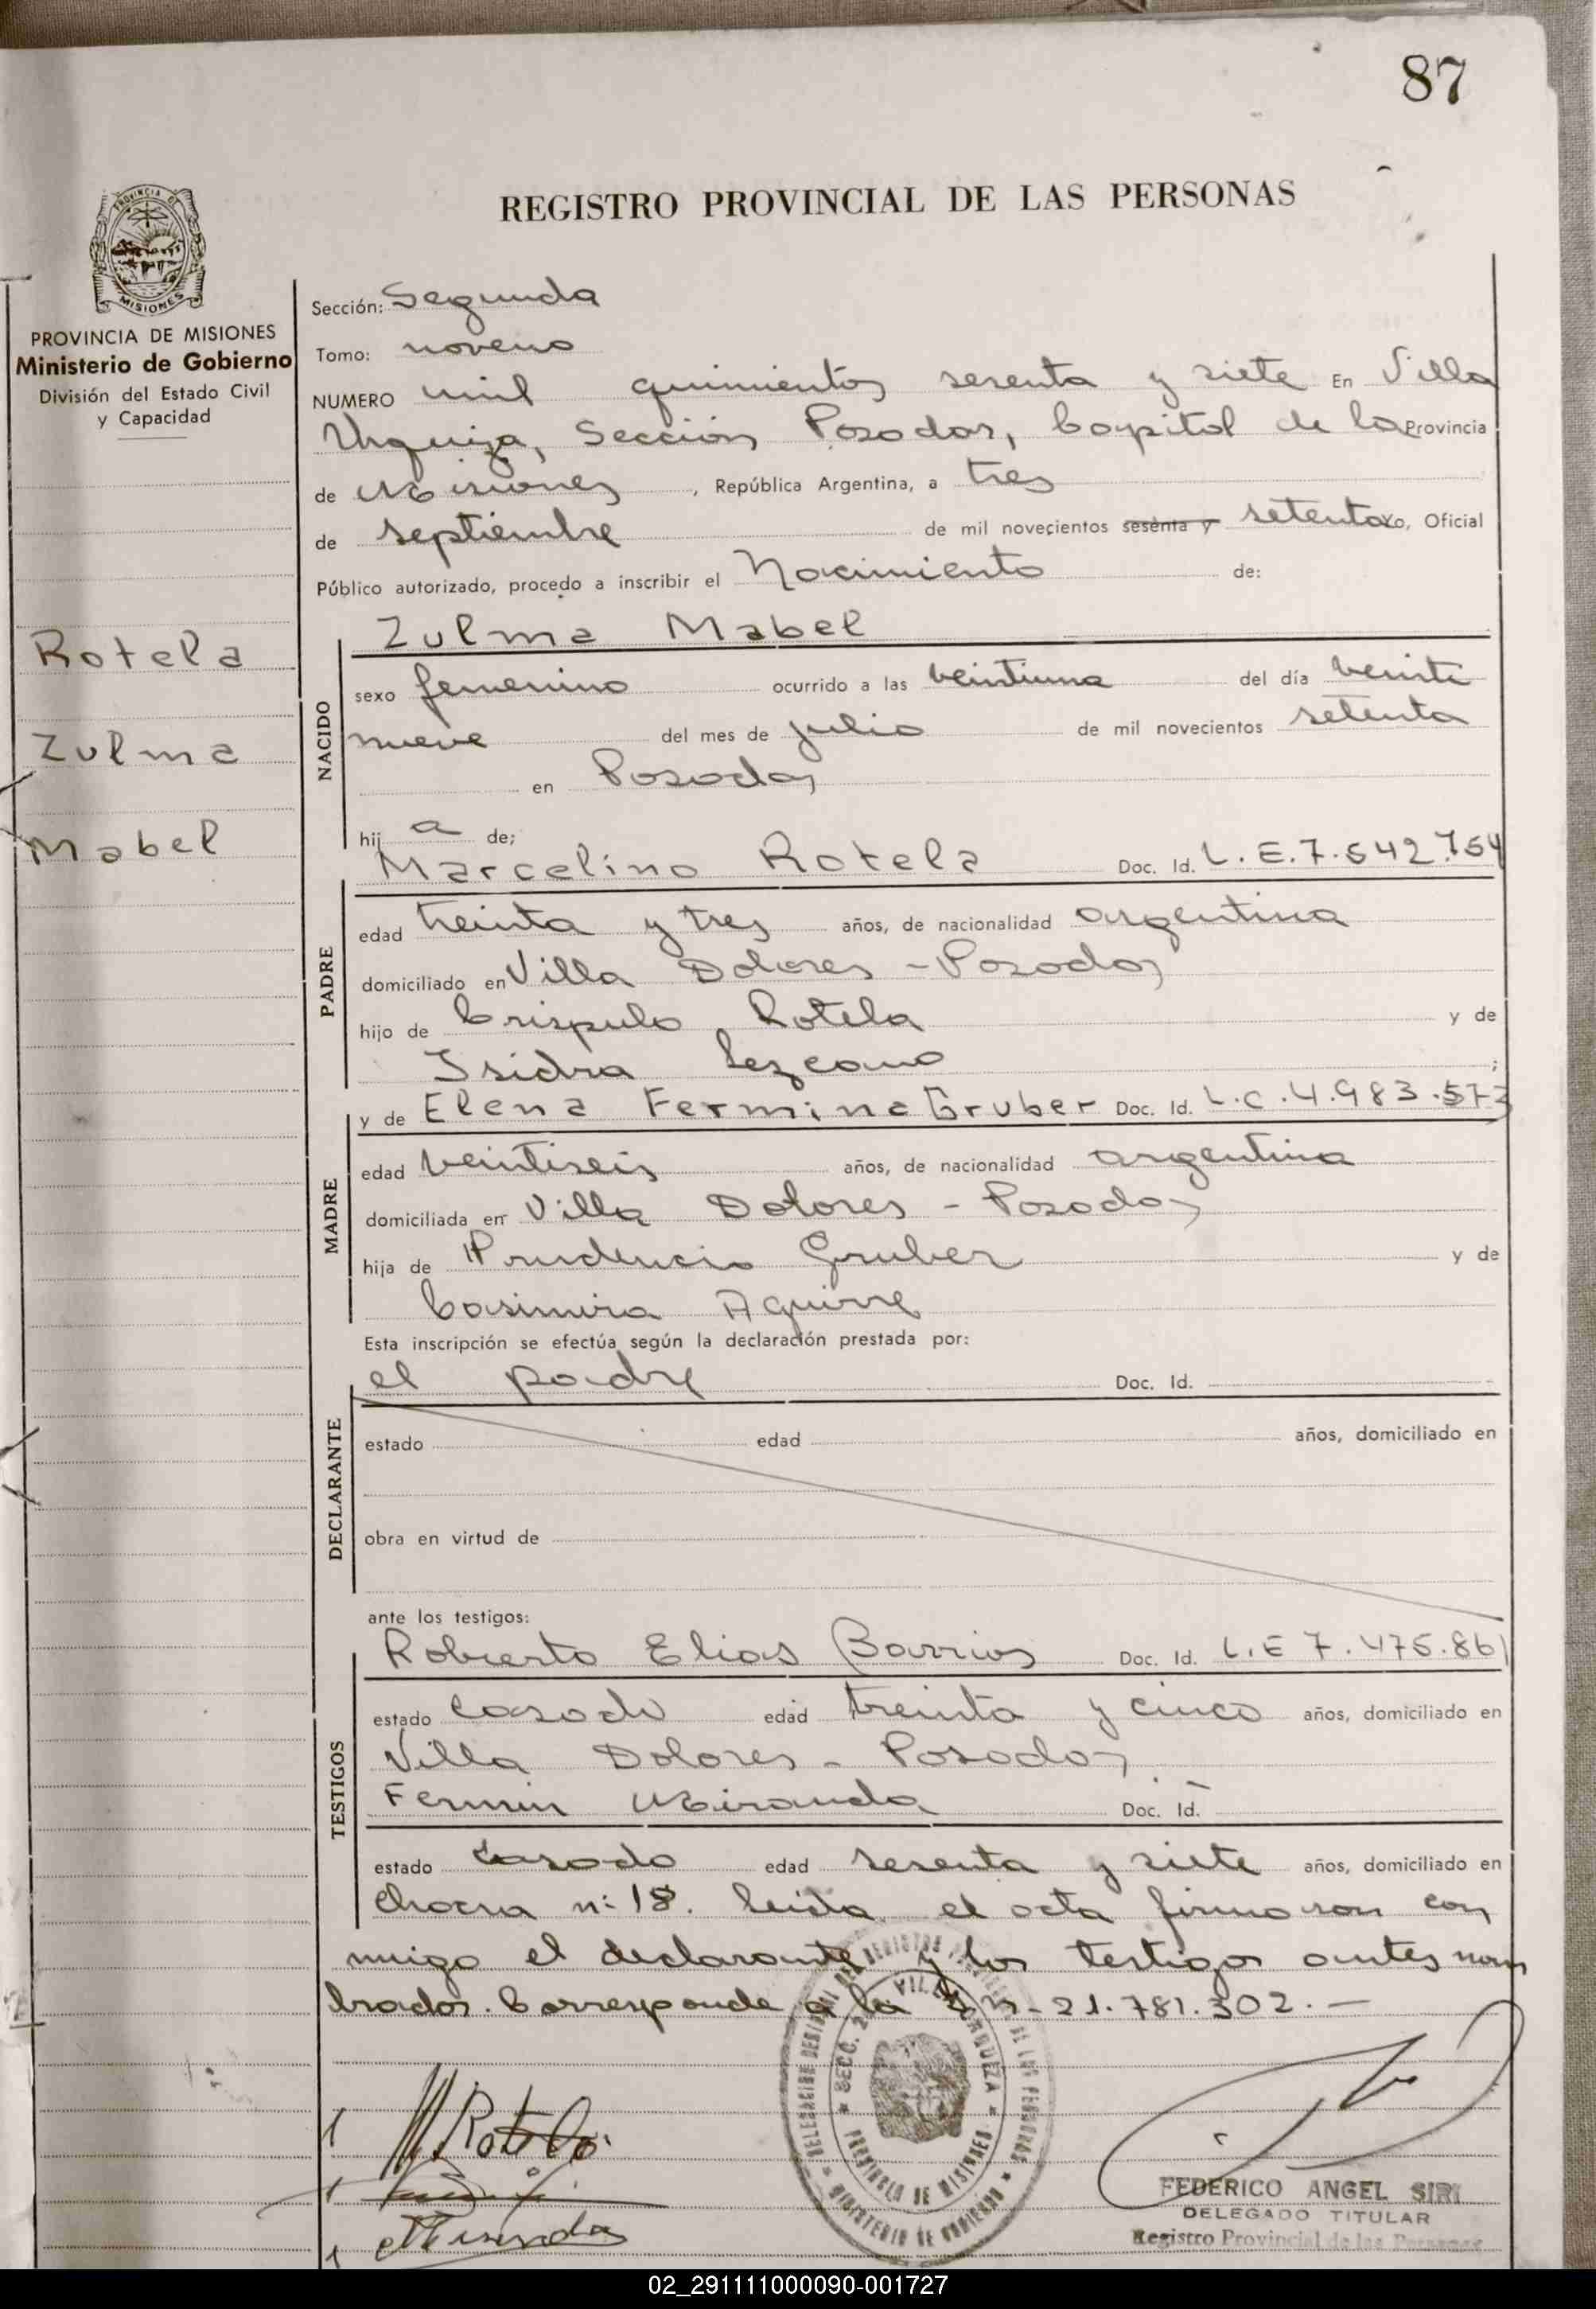 87
REGISTRO PROVINCIAL DE LAS PERSONAS
PROVINCIA
MISIONES
PROVINCIA DE MISIONES
Ministerio de Gobierno
División del Estado Civil
y Capacidad
Rotela
Zulma
Mabel
Sección: Segunda
Tomo: noveno
NUMERO mil quinientos sesenta y siete En Villa
Urquiza, Sección Posadas, Capital de la Provincia
de Misiones, República Argentina, a tres
de septiembre de mil novecientos sesenta y setenta yo, Oficial
Público autorizado, procedo a inscribir el Nacimiento de:
Zulma Mabel
NACIDO
sexo femenino ocurrido a las veintiuna del día veinti
nueve del mes de julio de mil novecientos setenta
en Posadas
hij a de;
Marcelino Rotela Doc. Id. L.E.7.542.754
PADRE
edad treinta y tres años, de nacionalidad argentina
domiciliado en Villa Dolores - Posadas
hijo de Crispulo Rotela y de
Isidra Lezcano ;
y de Elena Fermina Gruber Doc. Id. L.C.4.983.573
MADRE
edad veintiseis años, de nacionalidad argentina
domiciliada en Villa Dolores - Posadas
hija de Prudencio Gruber y de
Casimira Aguirre
Esta inscripción se efectúa según la declaración prestada por:
el padre Doc. Id.
DECLARANTE
estado edad años, domiciliado en
obra en virtud de
ante los testigos:
Roberto Elias Barrios Doc. Id. L.E 7.475.861
TESTIGOS
estado casado edad treinta y cinco años, domiciliado en
Villa Dolores - Posadas
Fermin Miranda Doc. Id.
estado casado edad sesenta y siete años, domiciliado en
Chacra n: 18. Leida el acta firmaron con
migo el declarante y los testigos antes nom
brados. Corresponde a la 21.781.302.-
M Rotela
Miranda
SECC. VILLA URQUIZA
PROVINCIA DE MISIONES
MINISTERIO DE GOBIERNO
FEDERICO ANGEL SIRI
DELEGADO TITULAR
Registro Provincial de las Personas
02_291111000090-001727